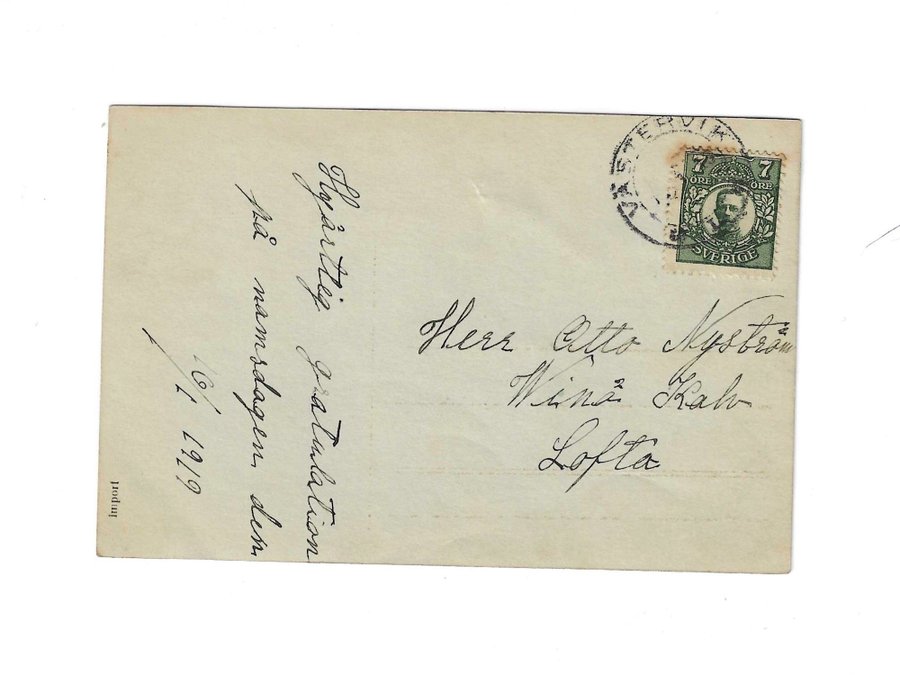 Hjärtlig gratulation
på namsdagen den
16/1 1919
Import
VÄSTERVIK
7 7
ÖRE ÖRE
SVERIGE
Herr Otto Nyström
Winö Kalv
Lofta